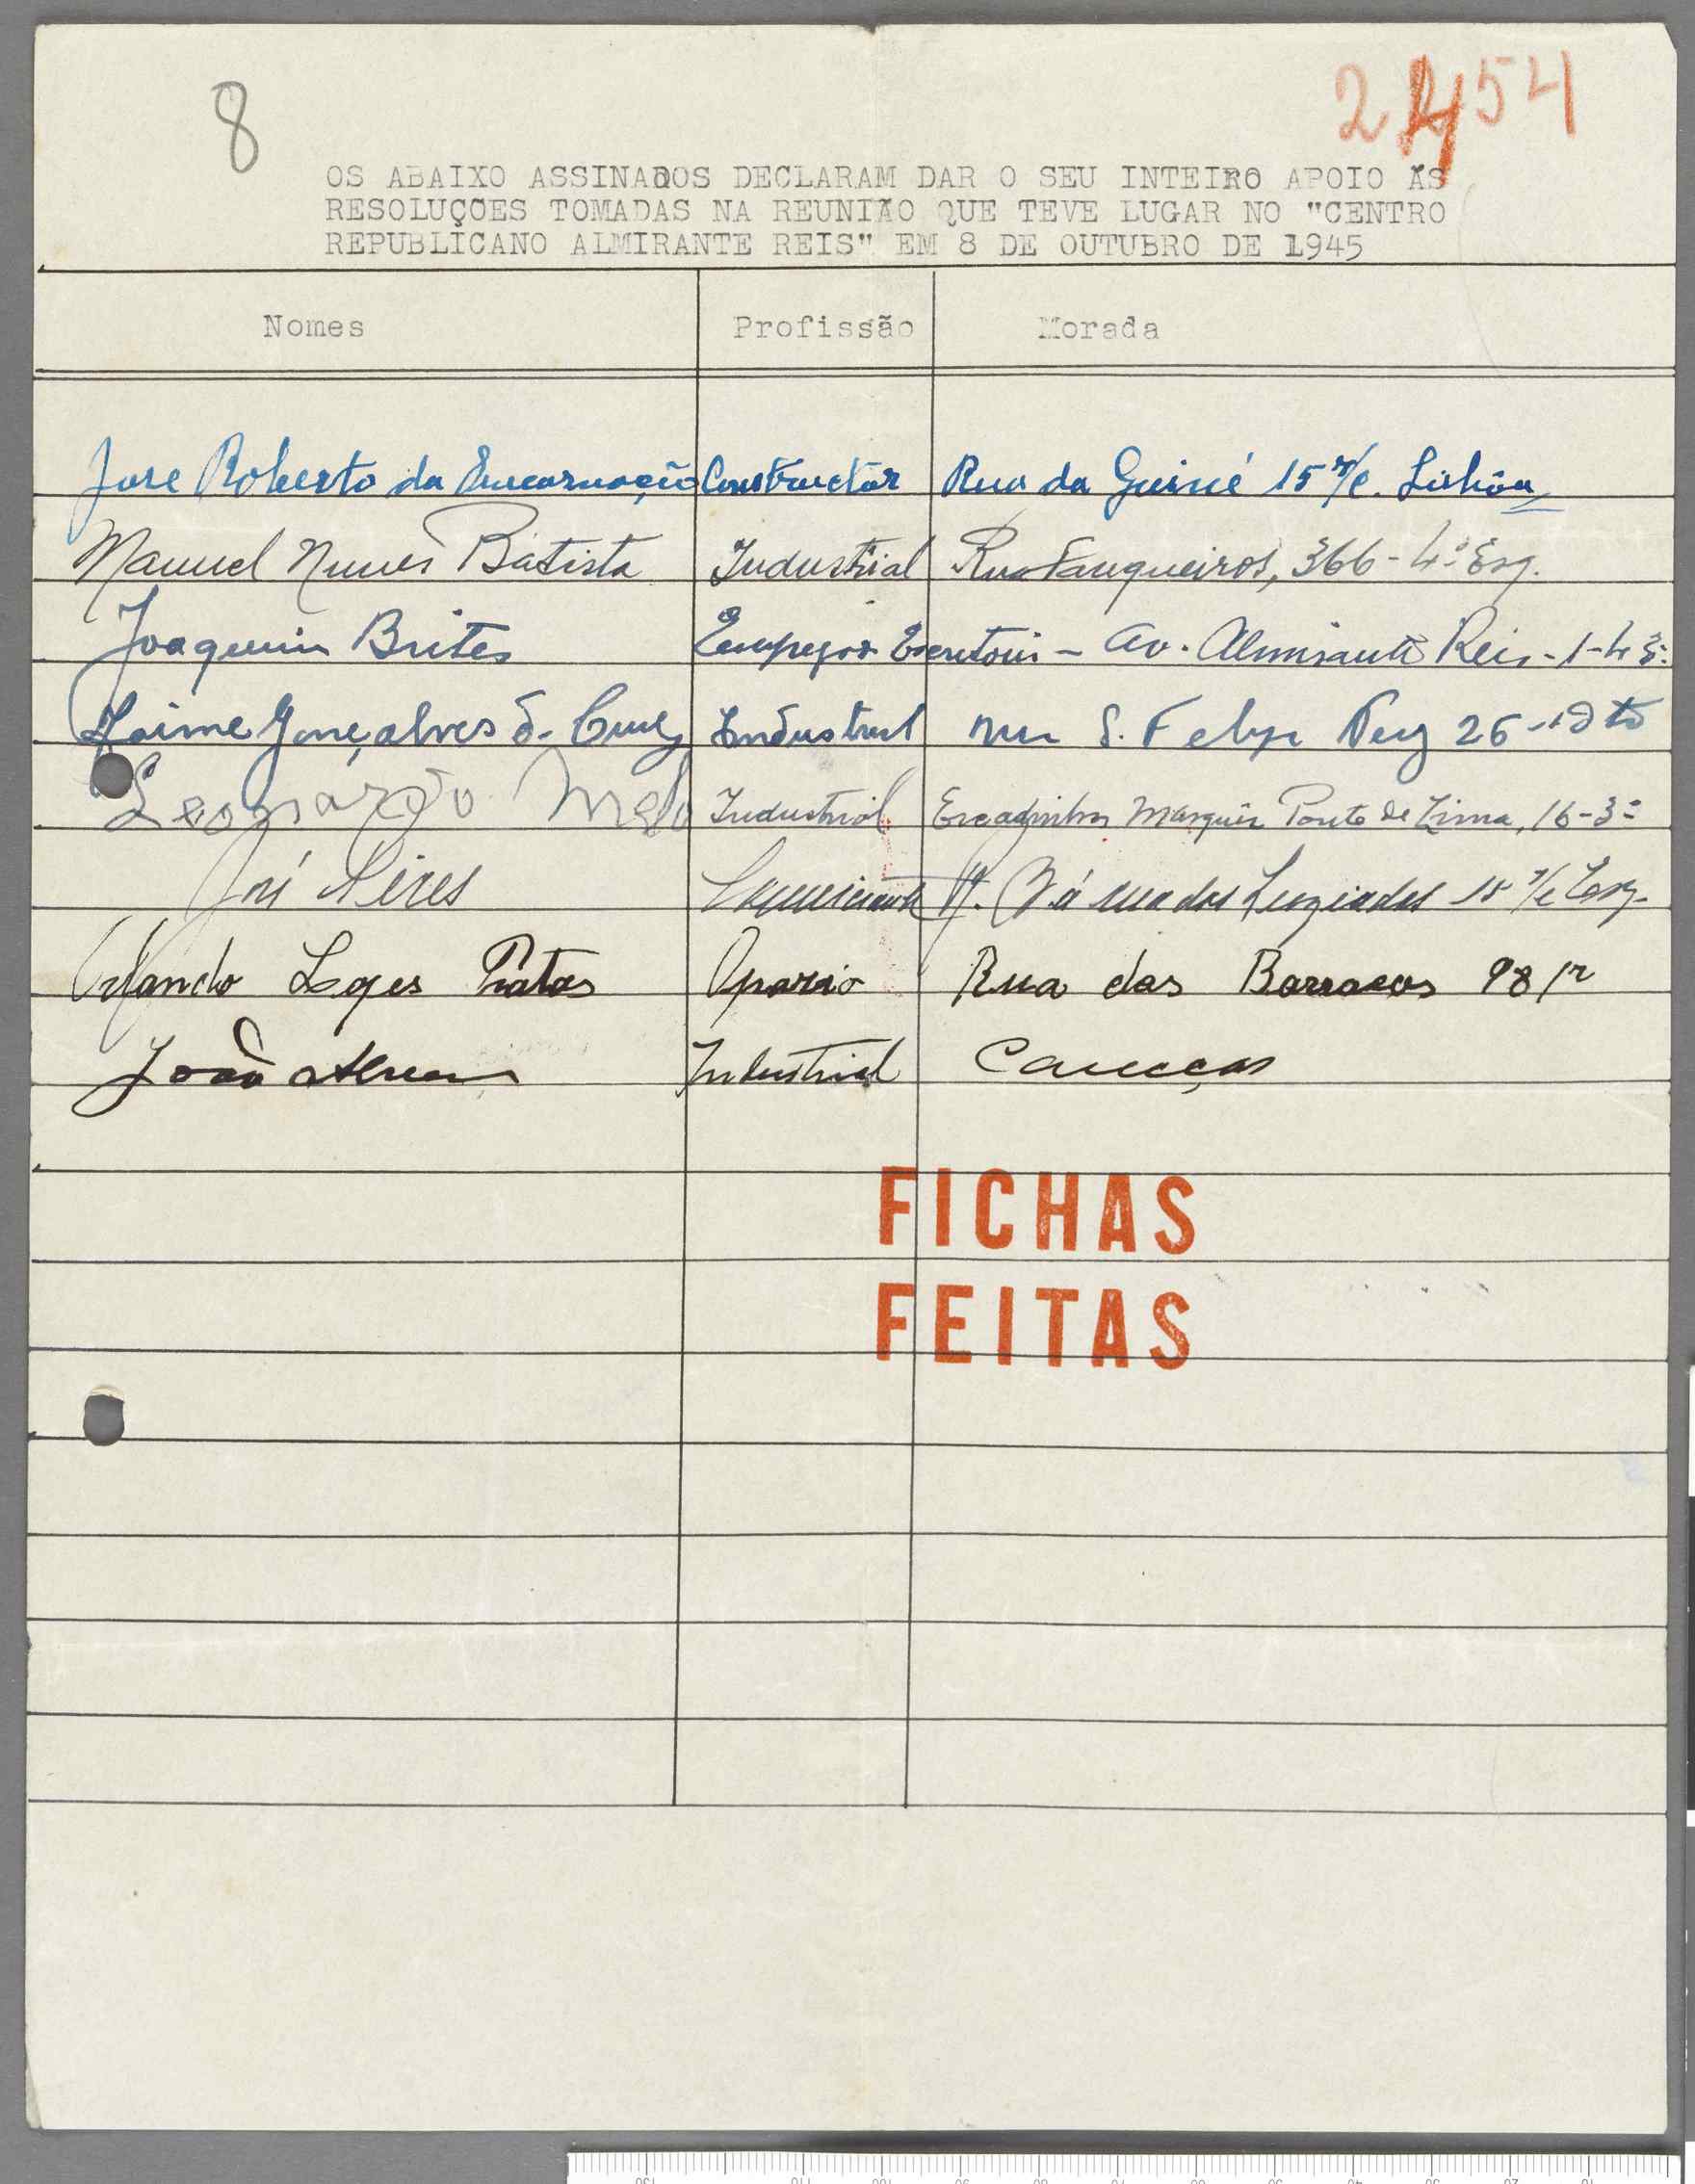 8
2454
OS ABAIXO ASSINADOS DECLARAM DAR O SEU INTEIRO APOIO ÀS
RESOLUÇÕES TOMADAS NA REUNIÃO QUE TEVE LUGAR NO "CENTRO
REPUBLICANO ALMIRANTE REIS" EM 8 DE OUTUBRO DE 1945
Nomes Profissão Morada
Jose Roberto da Encarnação Constructor Rua da Guiné 15 r/c. Lisbôa
Manuel Nunes Batista Industrial Rua Fanqueiros, 366-4º Esq.
Joaquim Brites Empregado Escritorio - Av. Almirante Reis - 1-4
Jaime Gonçalves d. Cruz Industrial S. Felipe Nery 26
Leonardo Melo Industrial Escadinhas Marquês Ponte de Lima, 16-3º
José Comerciante R. dos Lusiadas 15 r/c Esq.
Orlando Lopes Pratas Operario Rua das Barracas 98
João Industrial Caneças
FICHAS
FEITAS